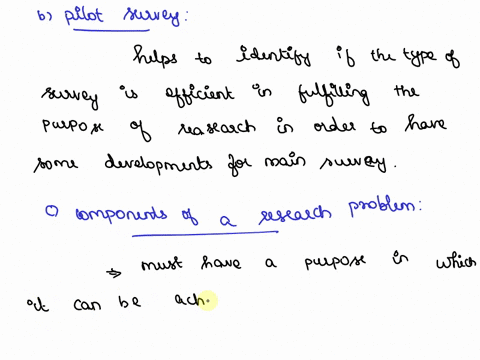 b) pilot survey:
helps to identify if the type of
survey is efficient in fulfilling the
purpose of reasearch in order to have
some developments for main survey.
c) components of a research problem:
⇒ must have a purpose in which
it can be ach.